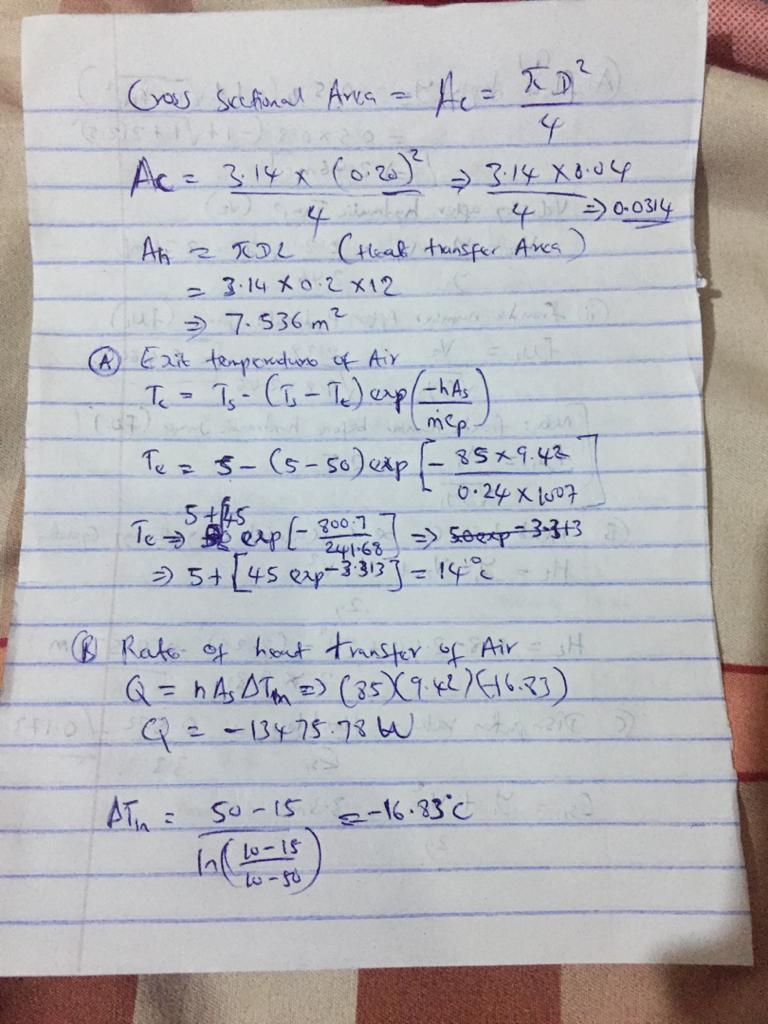 Cross Sectional Area = Ac = πD²/4
Ac = 3.14 x (0.20)²/4 ⇒ 3.14 x 0.04/4 ⇒ 0.0314
Ah = πDL (Heat transfer Area)
= 3.14 x 0.2 x 12
⇒ 7.536 m²
(A) Exit temperature of Air
Te = Ts - (Ts - Te) exp(-hAs/ṁcp)
Te = 5 - (5 - 50) exp[- 85 x 9.42/0.24 x 1007]
Te ⇒ 5 + [45 exp[- 800.7/241.68] ⇒ 50exp - 3.313
⇒ 5 + [45 exp - 3.313] = 14°c
(B) Rate of heat transfer of Air
Q = hAsΔTm ⇒ (85)(9.42)(-16.83)
Q = -13475.78 W
ΔTm = 50 - 15/ln(10 - 15/10 - 50) = -16.83°c